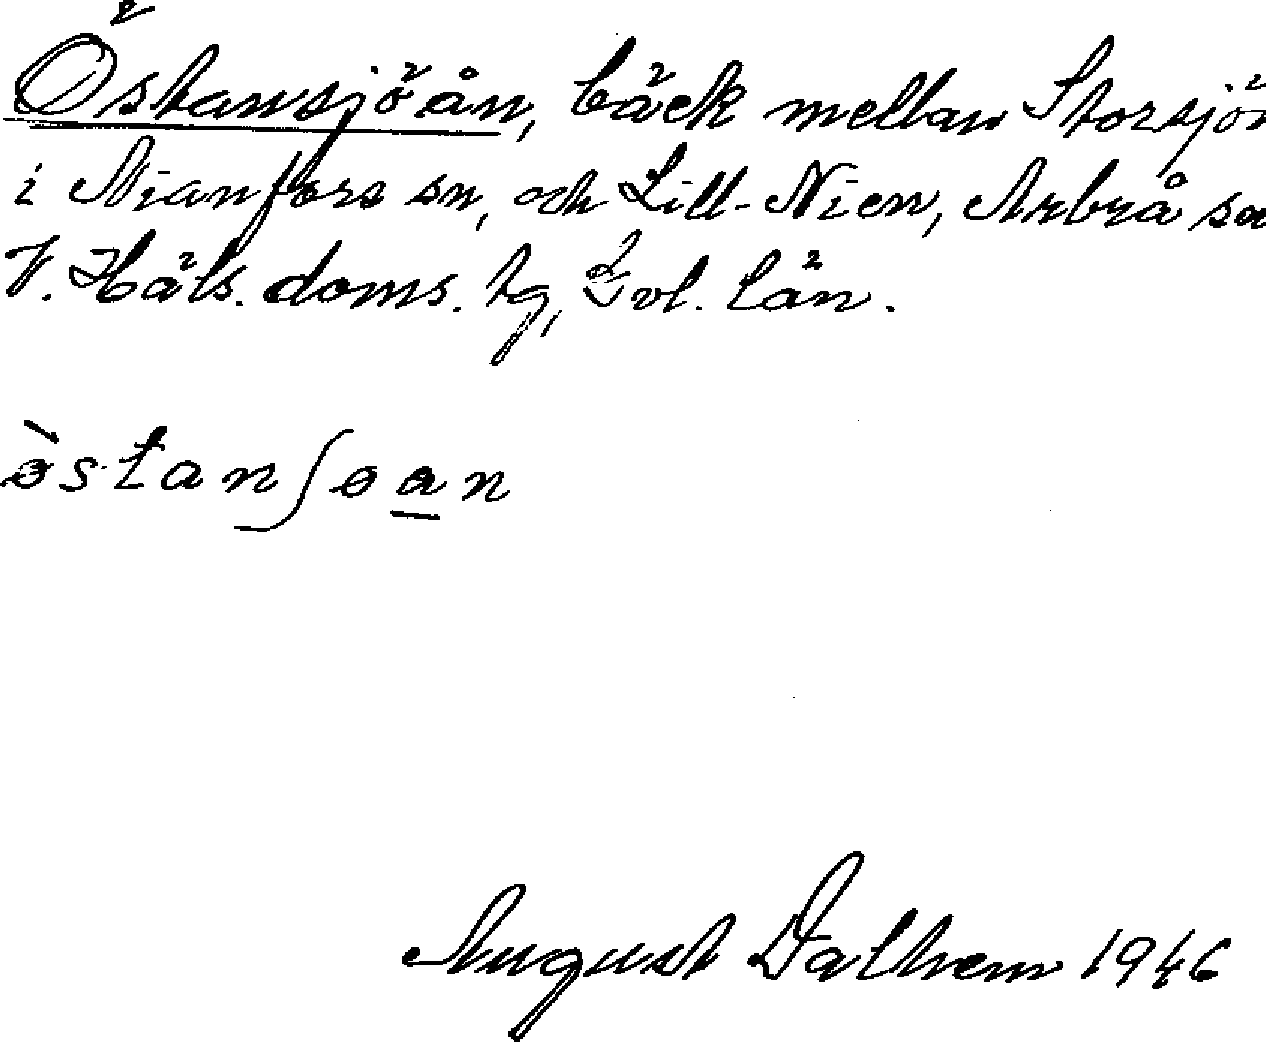 Östansjöån, bäck mellan Storsjön
i Nianfors sn, och Lill-Nien, Arbrå sn
V. Häls. doms. tg, Gvl. län.
östanʃoan
August Dalhem 1946